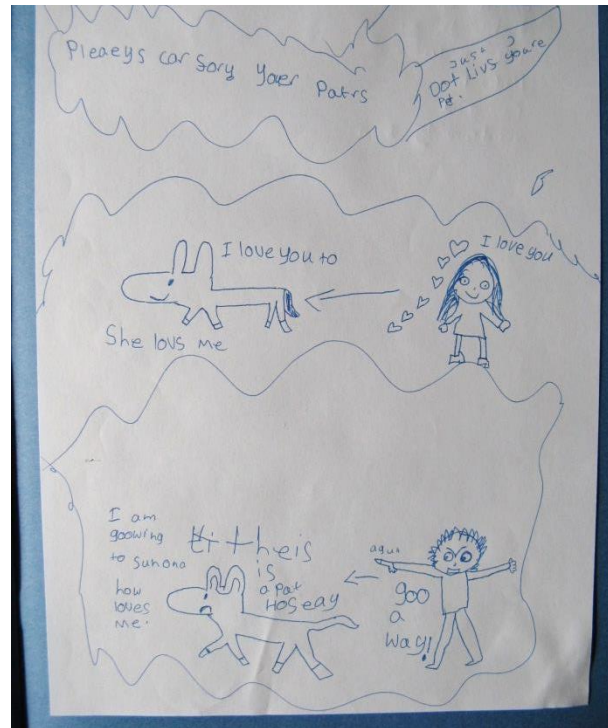 Pleaeys car Sory yaer Patrs
Just
Dot Livs youre
Pet.
I love you to
I love you
She lovs me
I am
goowing
to sunona
how
loves
me.
theis
is
a Pat
HOSeay
agua
goo
a
way!